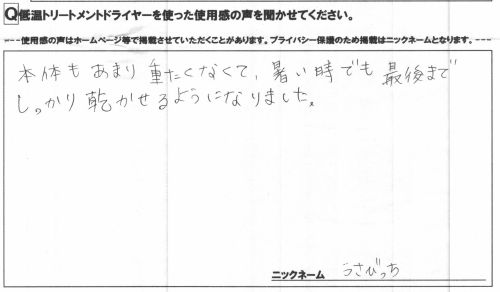 Q低温トリートメントドライヤーを使った使用感の声を聞かせてください。
---使用感の声はホームページ等で掲載させていただくことがあります。プライバシー保護のため掲載はニックネームとなります。---
本体もあまり重たくなくて、暑い時でも最後まで
しっかり乾かせるようになりました。
ニックネーム うさびっち